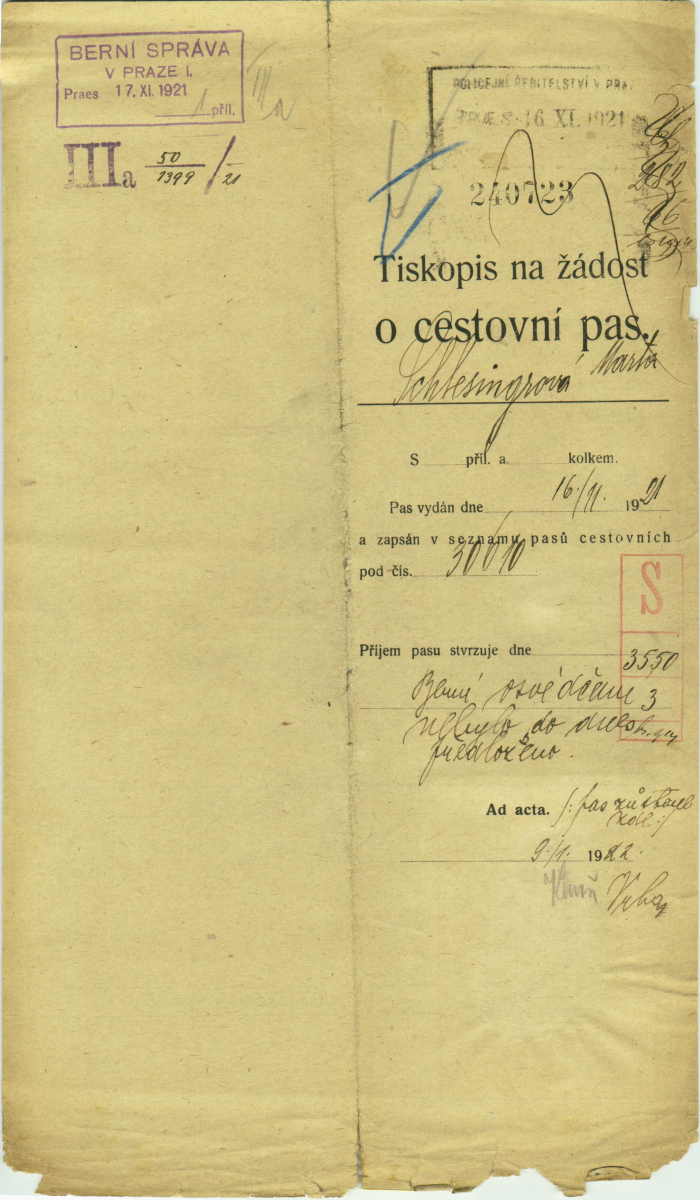 BERNÍ SPRÁVA
V PRAZE I.
Praes 17. XI. 1921
1 příl.
IIIa 50/1399 / 21
III a
POLICEJNÍ ŘEDITELSTVÍ V PRA
PRAES. 16 XI. 1921
240723
Tiskopis na žádost
o cestovní pas.
Schlesingrová Marta
S příl. a kolkem.
Pas vydán dne 16./11. 1921
a zapsán v seznamu pasů cestovních
pod čís. 30010
S
Příjem pasu stvrzuje dne
3550
Berní osvědčení 3
nebylo do dnes
předloženo.
Ad acta. /: pas zůstává
zde :/
9./1. 1922.
Vrba